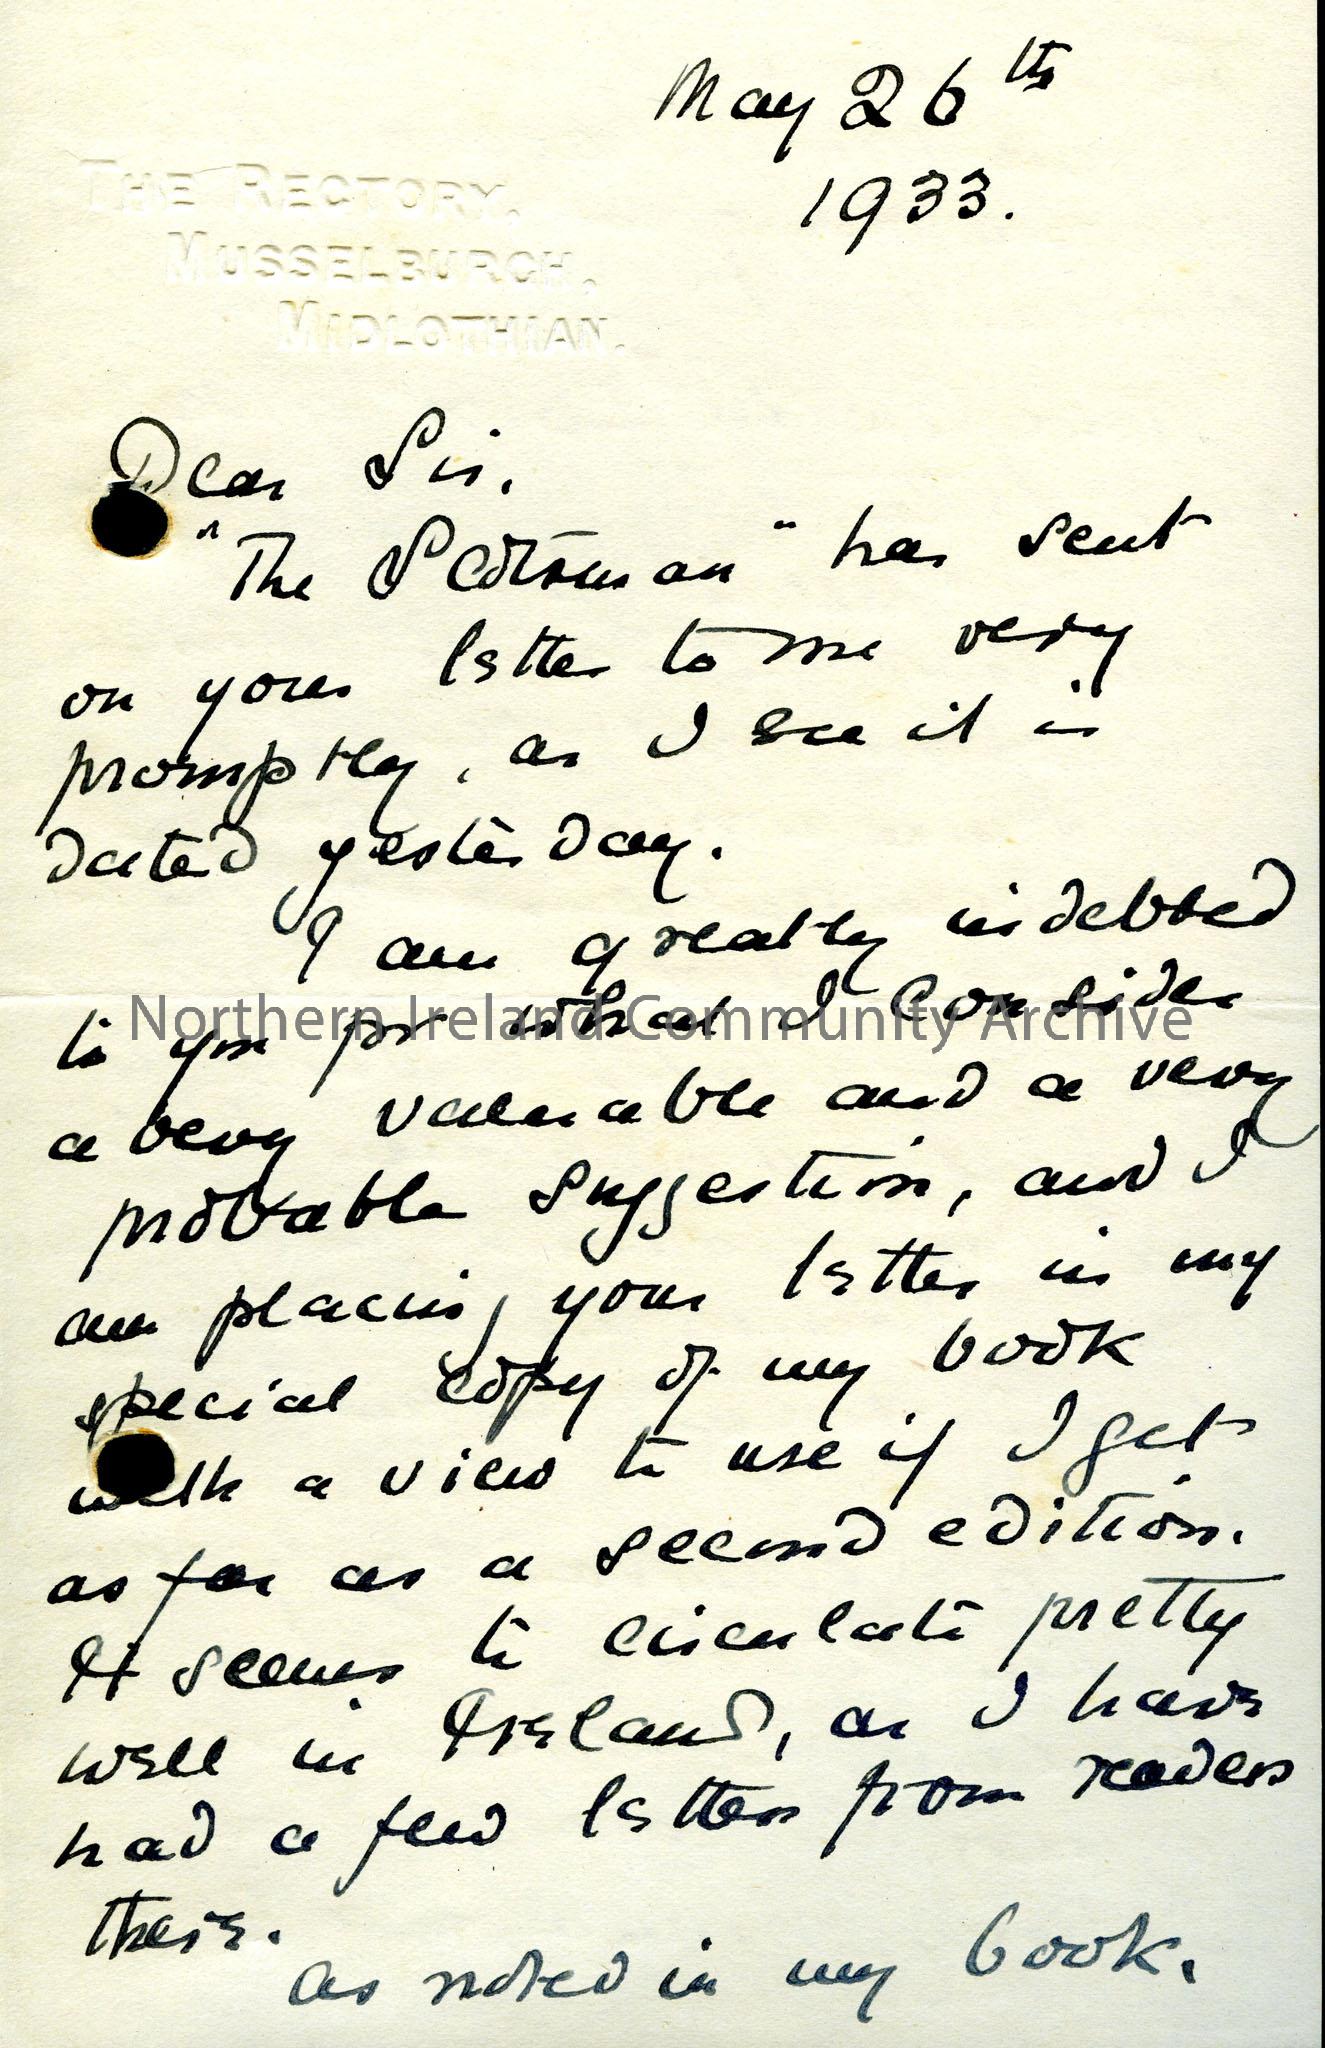 May 26th
1933.
THE RECTORY,
MUSSELBURGH,
MIDLOTHIAN.
Dear Sir,
"The Scotsman" has sent
on your letter to me very
promptly, as I see it is
dated yesterday.
I am greatly indebted
to you for what I consider
a very valuable and a very
probable suggestion, and I
am placing your letter in my
special copy of my book
with a view to use if I get
as far as a second edition.
It seems to circulate pretty
well in Ireland, as I have
had a few letters from readers
there.
As noted in my book,
Northern Ireland Community Archive